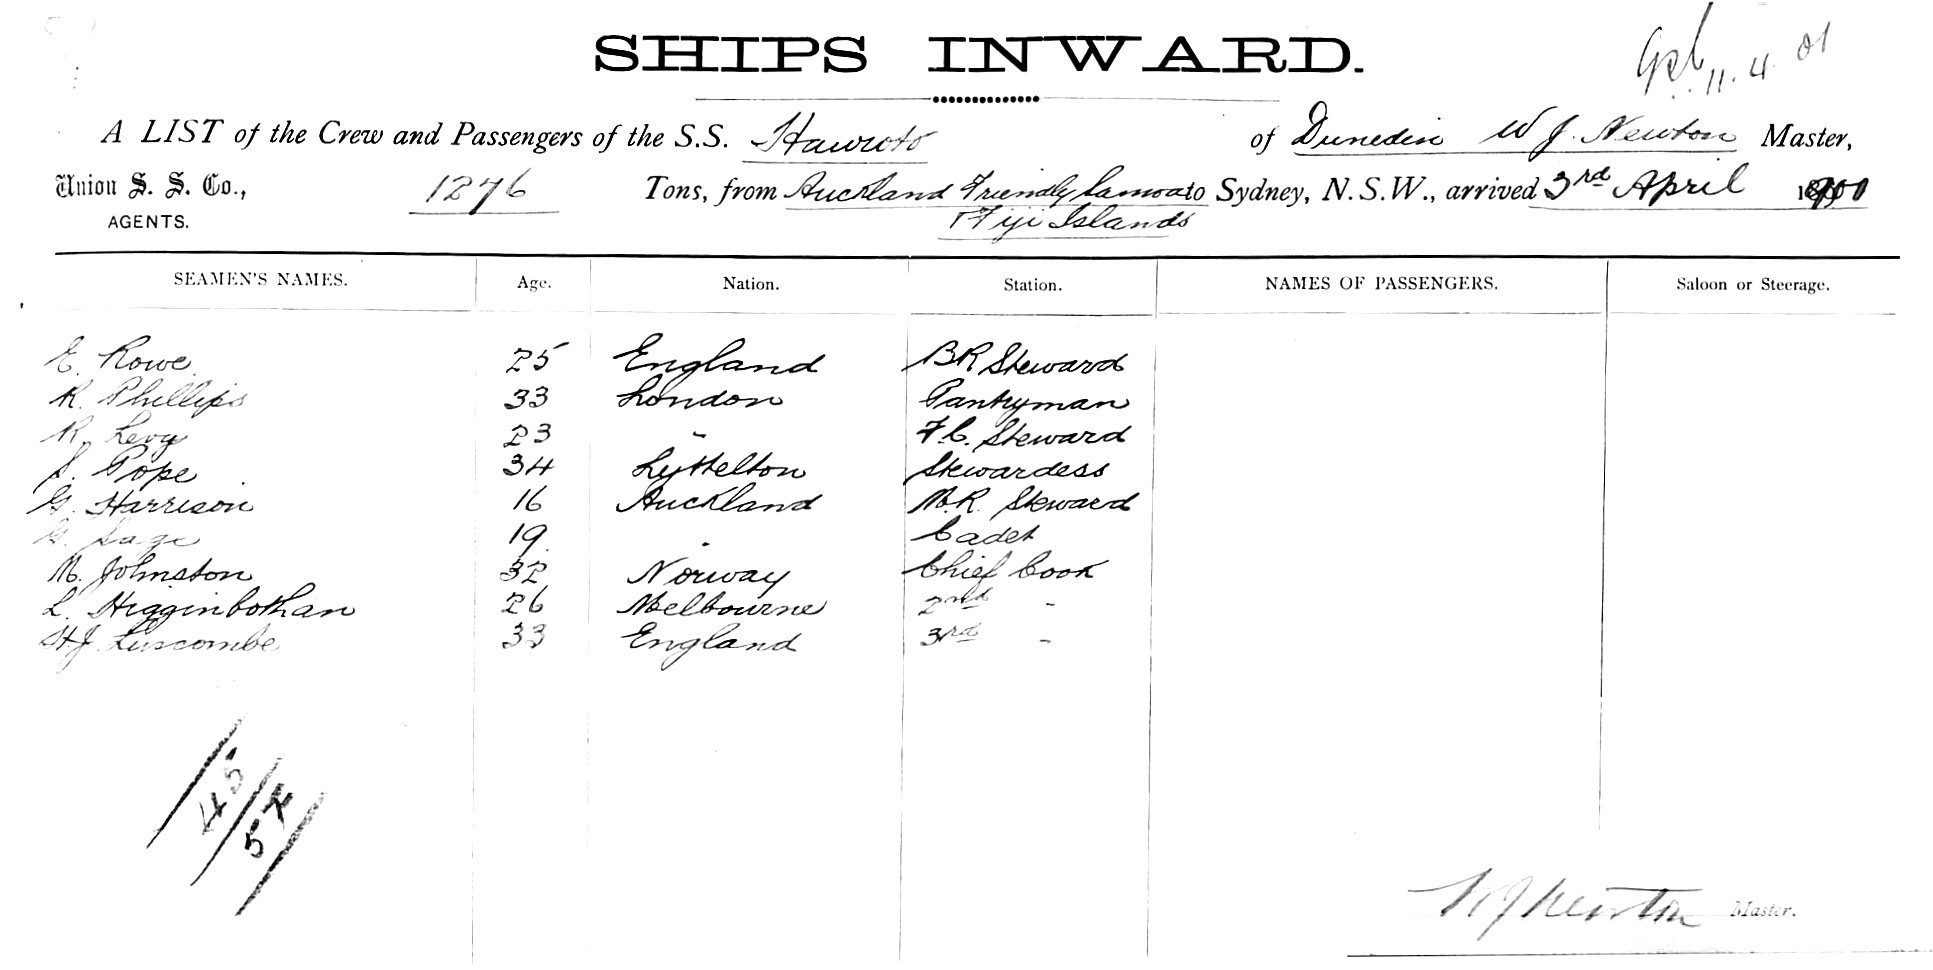 SHIPS INWARD.
11. 4. 01
A LIST of the Crew and Passengers of the S.S. Hauroto of Dunedin W J. Newton Master,
Union S. S. Co., 1276 Tons, from Auckland Friendly Samoa to Sydney, N.S.W., arrived 3rd April 1901
AGENTS. Fiji Islands
SEAMEN'S NAMES. Age. Nation. Station. NAMES OF PASSENGERS. Saloon or Steerage.
E. Rowe 25 England BR Steward
R. Phillips 33 London Pantryman
R. Levy 23 " F.C. Steward
S. Pope 34 Lyttelton Stewardess
G. Harrison 16 Auckland M.R. Steward
G. Sage 19 " Cadet
M. Johnston 32 Norway Chief Cook
L. Higginbothan 26 Melbourne 2nd "
H.J. Luscombe 33 England 3rd "
45
W J Newton Master.